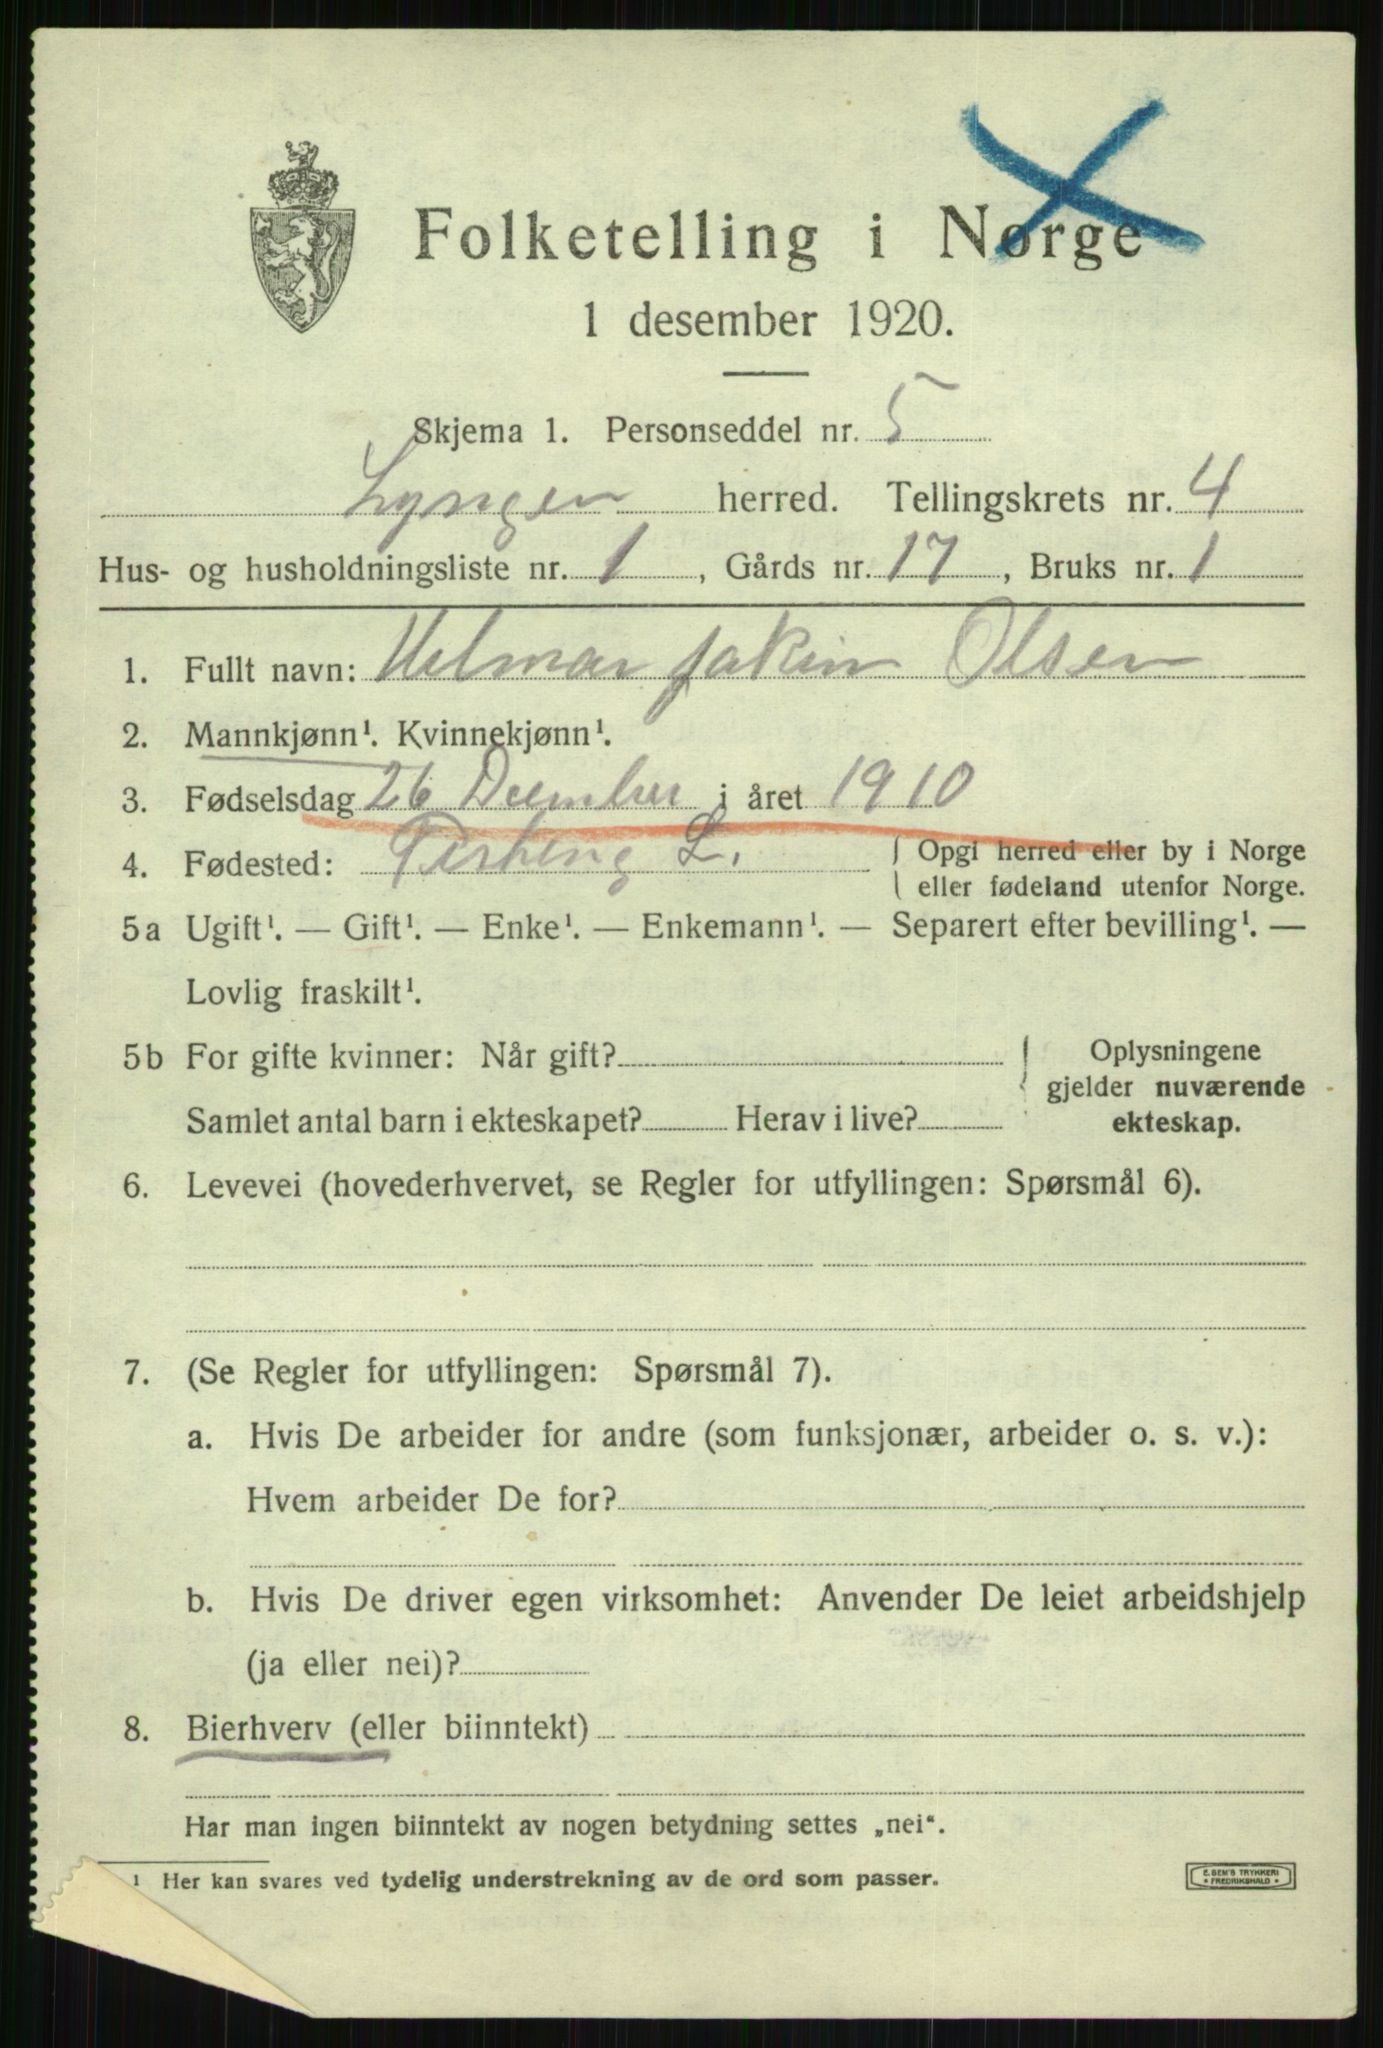 Folketelling i Norge
1 desember 1920.
Skjema 1. Personseddel nr. 5
Lyngen herred. Tellingskrets nr. 4
Hus- og husholdningsliste nr. 1, Gårds nr. 17, Bruks nr. 1
1. Fullt navn: Hilmar Jakin Olsen
2. Mannkjønn¹. Kvinnekjønn¹.
3. Fødselsdag 26 December i året 1910
4. Fødested: L. Opgi herred eller by i Norge
eller fødeland utenfor Norge.
5a Ugift¹. — Gift¹. — Enke¹. — Enkemann¹. — Separert efter bevilling¹. —
Lovlig fraskilt¹.
5b For gifte kvinner: Når gift? Oplysningene
gjelder nuværende
Samlet antal barn i ekteskapet? Herav i live? ekteskap.
6. Levevei (hovederhvervet, se Regler for utfyllingen: Spørsmål 6).
7. (Se Regler for utfyllingen: Spørsmål 7).
a. Hvis De arbeider for andre (som funksjonær, arbeider o. s. v.):
Hvem arbeider De for?
b. Hvis De driver egen virksomhet: Anvender De leiet arbeidshjelp
(ja eller nei)?
8. Bierhverv (eller biinntekt)
Har man ingen biinntekt av nogen betydning settes „nei“.
¹ Her kan svares ved tydelig understrekning av de ord som passer.
E. SEM'S TRYKKERI
• FREDRIKSHALD •